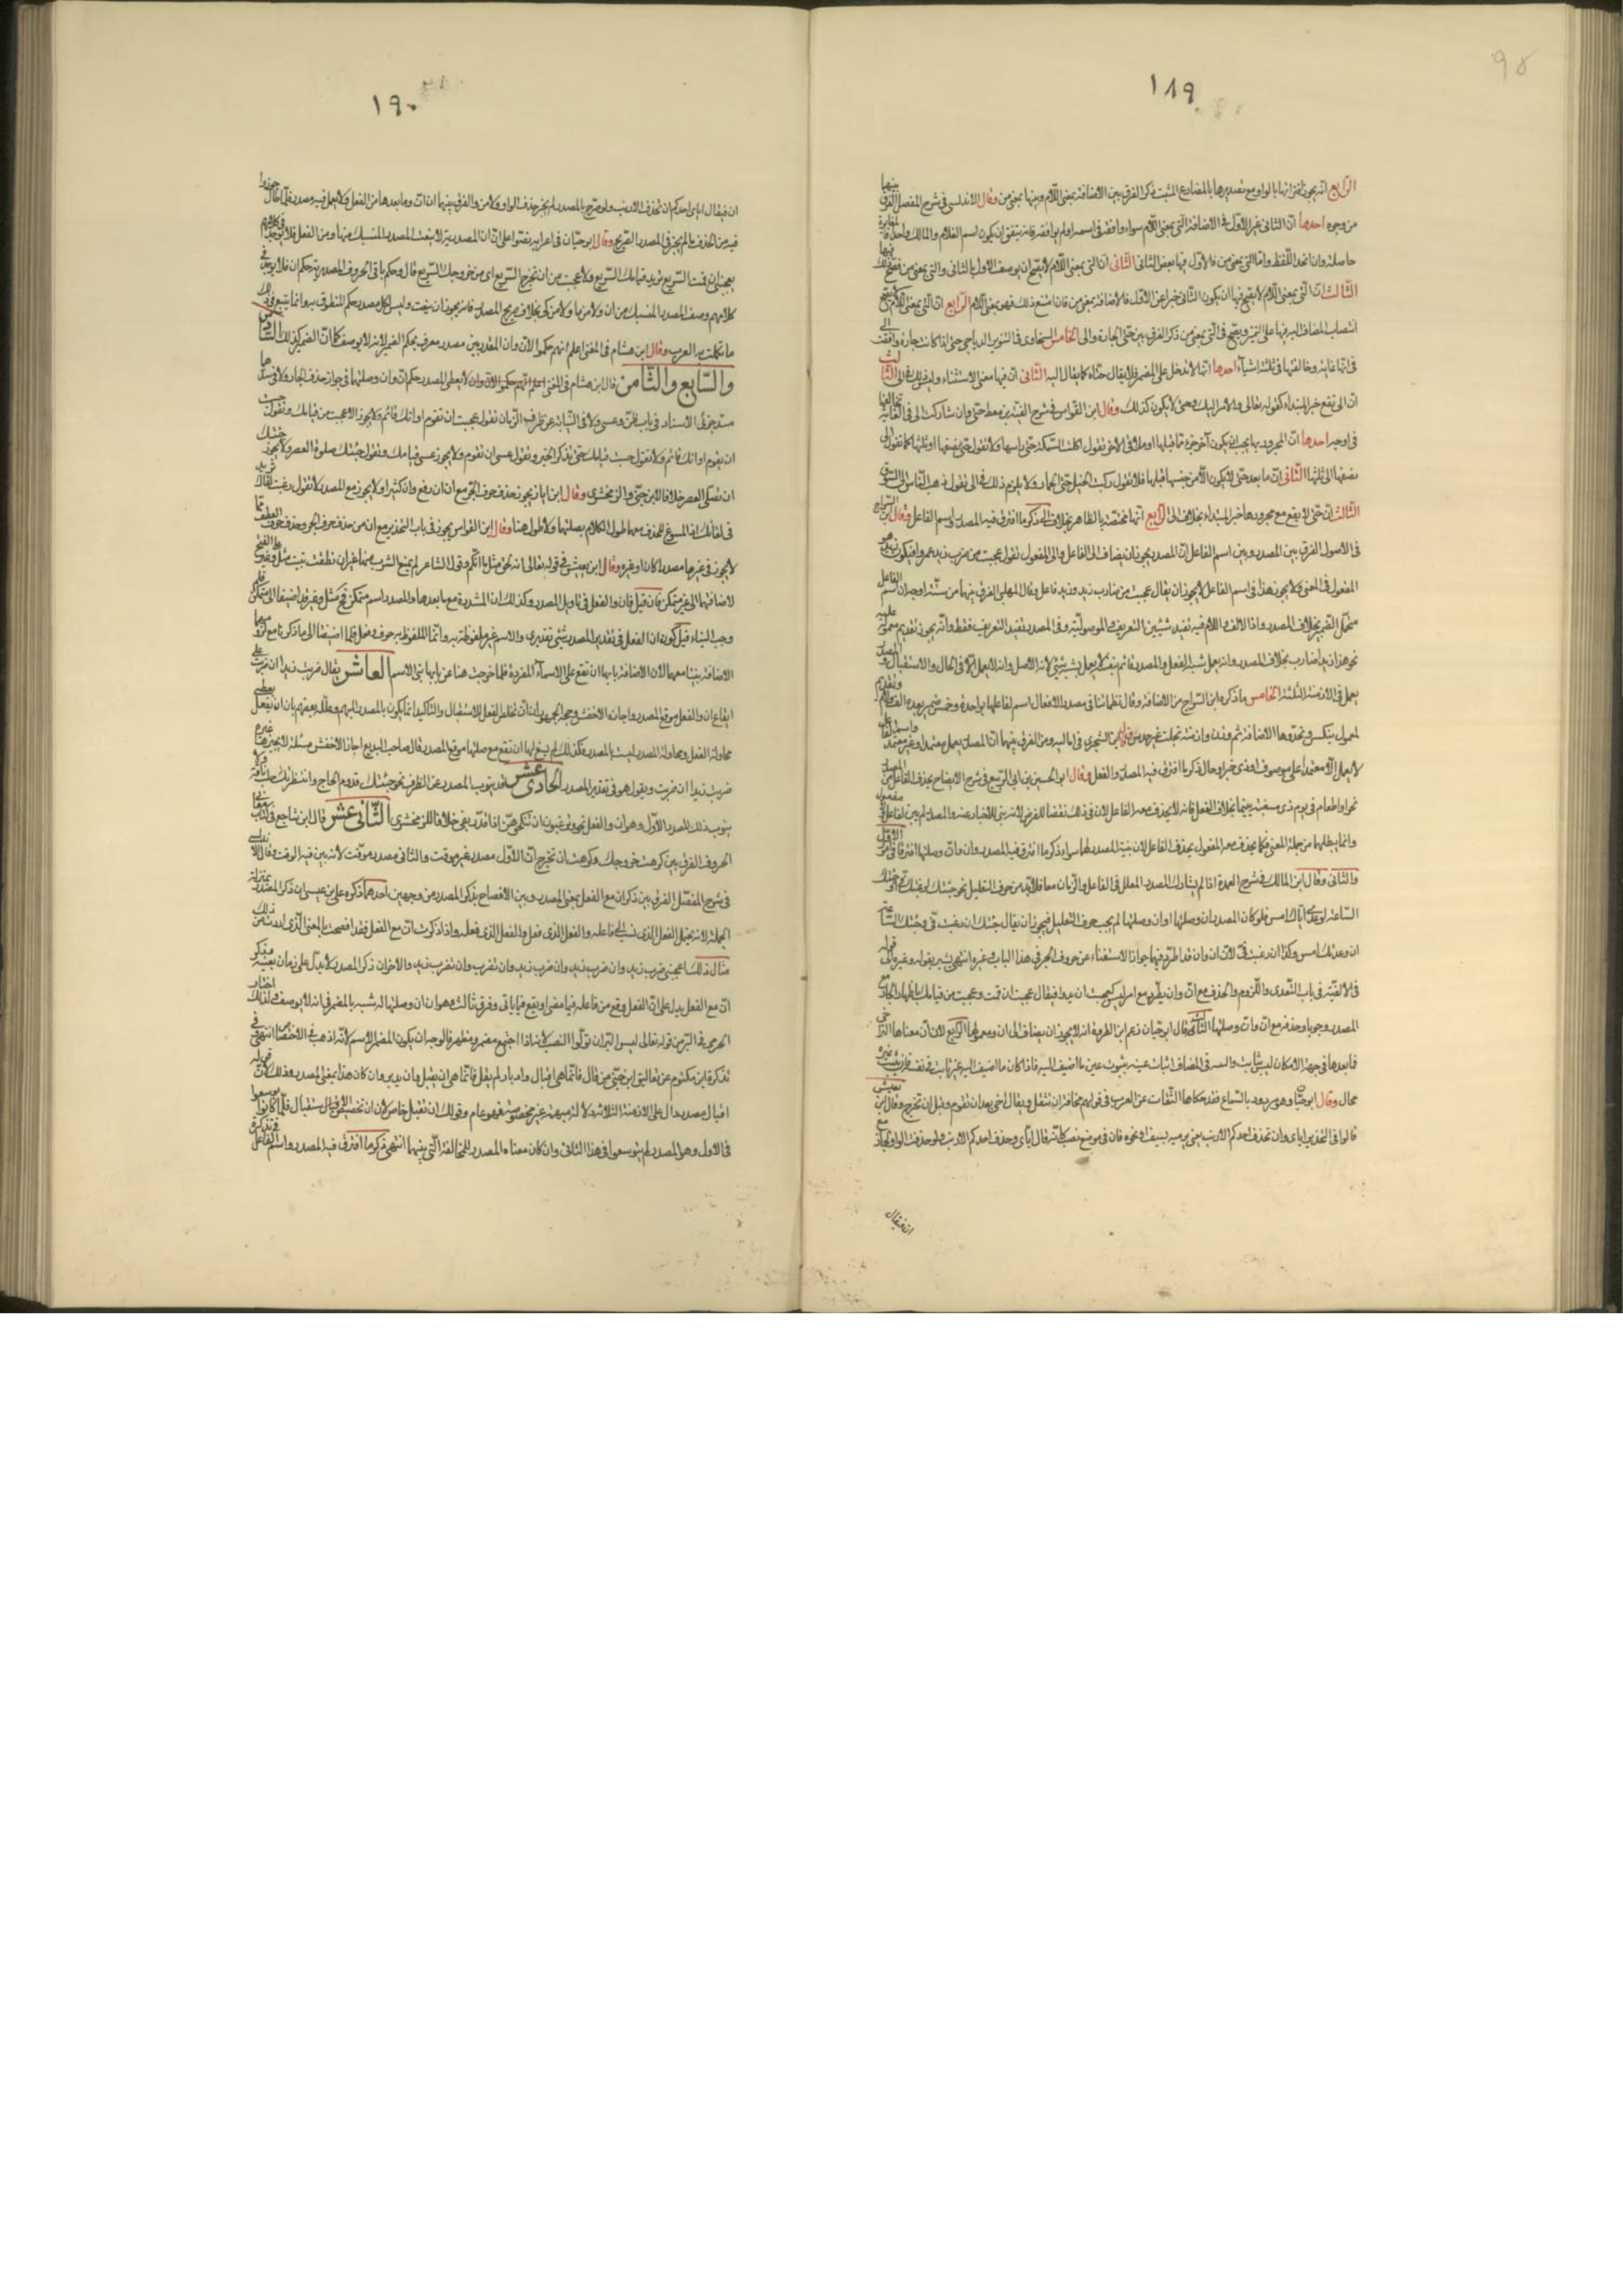 ١٨٩
الرابع انه يجوز اقترانها بالواو مع تصديرها بالمضارع المثبت ذكر الفرق بين الاضافة بمعنى اللام وبينها بمعنى من وقال الاندلسى فى شرح المفصل الفرق بينها
من وجوه احدها ان الثانى غير الاول فى الاضافة التى بمعنى اللام سواء وافقه فى اسمه او لم يوافقه فانه يتفق ان يكون اسم الغلام والمالك واحد فالمغايرة
حاصلة وان اتحد اللفظ واما التى بمعنى من فالاول فيها بعض الثانى الثانى ان التى بمعنى اللام لا يصح ان يوصف الاول بالثانى والتى بمعنى من يصح ذلك فيها
الثالث ان التى بمعنى اللام لا يصح فيها ان يكون الثانى خبرا عن الاول فالاضافة بمعنى من فان امتنع ذلك فهو بمعنى اللام الرابع ان التى بمعنى اللام لا يصح
انتصاب المضاف اليه فيها على التمييز ويصح فى التى بمعنى من ذكر الفرق بين حتى الجارة والى الخامس السخاوى فى تنوير الدياجى حتى اذا كانت جارة وافقت الى
فى انها غاية وخالفتها فى ثلثة اشياء احدها انها لا تدخل على المضمر فلا يقال حتاه كما يقال اليه الثانى ان فيها معنى الاستثناء وليس ذلك فى الى الثالث
ان الى تقع خبر المبتداء كقوله تعالى والامر اليك وحتى لا يكون كذلك وقال ابن القواس فى شرح الفية ابن معط حتى وان شاركت الى فى الغاية تخالفها
فى اوجه احدها ان المجرور بها يجب ان يكون آخر جزء مما قبلها او ملاقى الآخر تقول اكلت السمكة حتى راسها ولا تقول حتى نصفها او ثلثها كما تقول الى
نصفها الى ثلثها الثانى ان ما بعد حتى لا يكون الا من جنس ما قبلها فلا تقول ركبت الخيل حتى الحمار ولا يلزم ذلك فى الى تقول ذهب الناس الى السوق
الثالث ان حتى لا يقع مع مجرورها خبر المبتداء بخلاف الى الرابع انها مختصة بالظاهر بخلاف الى ذكر ما افترق فيه المصدر واسم الفاعل وقال ابن السراج
فى الاصول الفرق بين المصدر وبين اسم الفاعل ان المصدر يجوز ان يضاف الى الفاعل والى المفعول تقول عجبت من ضرب زيد عمروا فيكون زيد هو
المفعول فى المعنى ولا يجوز هذا فى اسم الفاعل لا يجوز ان يقال عجبت من ضارب زيد وزيد فاعل وقال المهلبى الفرق بينهما من ستة اوجه ان اسم الفاعل
يتحمل الضمير بخلاف المصدر واذا الالف واللام فيه تفيد شيئين التعريف والموصولية وفى المصدر تفيد التعريف فقط وانه يجوز تقديم معموله عليه
نحو هذا زيدا ضارب بخلاف المصدر وانه يعمل بشبه الفعل والمصدر قائم بنفسه لا يعمل بشبه شئ لانه الاصل وانه لا يعمل الا فى الحال والاستقبال والمصدر
يعمل فى الازمنة الثلثة الخامس ما ذكره ابن السراج من الاضافة وقال نظما
وقال ابن الشجرى فى اماليه ومن الفرق بينهما ان المصدر يعمل معتمدا وغير معتمد واسم الفاعل
لا يعمل الا معتمدا على موصوف او ذى خبر او حال ذكر ما افترق فيه المصدر والفعل وقال ابو الحسين بن ابى الربيع فى شرح الايضاح يحذف الفاعل من المصدر
نحو او اطعام فى يوم ذى مسغبة يتيما بخلاف الفعل فانه لا يحذف معه الفاعل لان فى ذلك نقضا للغرض لانه بنى للاخبار عنه والمصدر لم يبن لفاعل ولا مفعول
وانما يطلبهما من جهة المعنى فكما يحذف معه المفعول يحذف الفاعل لان بنية المصدر لهما سواء ذكر ما افترق فيه المصدر وان وان وصلتها افترقا فى امور الاول
والثانى وقال ابن المالك فى شرح العمدة اذا لم يشارك المصدر المعلل فى الفاعل والزمان معا فلا بد من حرف التعليل نحو جئتك لرغبتك فى وجئتك
الساعة لوعدى اياك امس فلو كان المصدر ان وصلتها او ان وصلتها لم يجب حرف التعليل فيجوز ان يقال جئتك ان رغبت فى وجئتك الساعة
ان وعدتك امس وكذا انك رغبت فى لان ان وان قد اطرد فيهما جواز الاستغناء عن حروف الجر فى هذا الباب وغيره انتهى يشير بقوله وغيره الى قوله
فى الالفية فى باب التعدى واللزوم والحذف مع ان وان يطرد مع امن لبس كعجبت ان يدوا فيقال عجبت ان قمت وعجبت من قيامك باظهار الجار مع
المصدر وجوبا وحذفه مع ان وان وصلتها الثالث قال ابو حيان زعم ابن الطراوة انه لا يجوز ان يضاف الى ان ومعمولها الرابع لان ان معناها التراخى
فما بعدها فى جهة الامكان ليس بثابت والنية فى المضاف اثبات عينه بثبوت عين ما اضيف اليه فاذا كان ما اضيف اليه غير ثابت فى نفسه فان يثبت غيره
محال وقال ابو حيان وهو مردود بالسماع فقد حكاها الثقات عن العرب فى قولهم مخافة ان تفعل ويقال اجئ بعد ان تقوم وقبل ان تخرج وقال ابن يعيش
قالوا فى التحذير اياى وان يحذف احدكم الارنب يعنى يرميه بسيف او نحوه فان فى موضع نصب كانه قال اياى وحذف احدكم الارنب ولو حذفت الواو لجاز مع
ان فيقال
١٩٠
ان فيقال اياى احدكم ان تحذف الارنب ولو صرح بالمصدر لم يجز حذف الواو ولا من والفرق بينهما ان ان وما بعدها من الفعل ولا يعمل فيه مصدر فلما طال جوزوا
فيه من الحذف ما لم يجز فى المصدر الصريح وقال ابو حيان فى اعرابه نصوا على ان ان المصدرية لا ينعت المصدر المنسبك منها ومن الفعل فلا يوجد فى كلامهم
يعجبنى ان قمت السريع يريد قيامك السريع ولا عجبت من ان تخرج السريع اى من خروجك السريع قال وحكم باقى الحروف المصدرية حكم ان فلا يوجد فى
كلامهم وصف المصدر المنسبك من ان ولا من ما ولا من كى بخلاف صريح المصدر فانه يجوز ان ينعت وليس لكل مصدر حكم المنطوق به وانما يتبع فى ذلك
ما تكلمت به العرب وقال ابن هشام فى المغنى اعلم انهم حكموا لان وان المقدرتين بمصدر معرف بحكم الضمير لانه لا يوصف كما ان الضمير كذلك السادس
والسابع والثامن قال ابن هشام فى المغنى لا يعطى المصدر حكم ان وان وصلتهما فى جواز حذف الجار ولا فى سدهما
مسد جزئى الاسناد فى باب ظن وعسى ولا فى النيابة عن ظرف الزمان تقول عجبت ان تقوم او انك قائم ولا يجوز الا عجبت من قيامك وتقول حسبت
ان يقوم او انك قائم ولا تقول حسبت قيامك حتى تذكر الخبر وتقول عسى ان تقوم ولا يجوز عسى قيامك وتقول جئتك صلوة العصر ولا يجوز جئتك
ان تصلى العصر خلافا لابن جنى والزمخشرى وقال ابن اياز يجوز حذف حرف الجر مع ان ان رفع وان كثيرا ولا يجوز مع المصدر لا تقول رغبت لقاك تريد
فى لقائك اذ المسوغ للحذف معهما طول الكلام بصلتهما ولا طول هنا وقال ابن القواس يجوز فى باب التحذير مع ان من حذف حرف الجر وحذف حرف العطف ما
لا يجوز فى غيرها مصدرا كان او غيره وقال ابن يعيش فى قوله تعالى انه لحق مثل ما انكم وقول الشاعر لم يمنع الشرب منها غير ان نطقت بنيت مثل وغير على الفتح
لاضافتهما الى غير متمكن فان قيل فان والفعل فى تاويل المصدر وكذلك ان المشددة مع ما بعدها والمصدر اسم متمكن فمثل وغير قد اضيفا الى متمكن فلم
وجب البناء قيل كون ان الفعل فى تقدير المصدر شئ تقديرى والاسم غير ملفوظ به وانما الملفوظ به حرف وفعل فلما اضيفا الى ما ذكرنا مع لزومهما
الاضافة بنيا معها لان الاضافة بابها ان تقع على الاسماء المفردة فلما خرجت هنا عن بابها بنى الاسم العاشر يقال ضربت زيدا ان ضربت على
ايقاع ان والفعل موقع المصدر واجازه الاخفش وحجة الجمهور ان ان تخلص الفعل للاستقبال والتاكيد انما يكون بالمصدر المبهم وعلله بعضهم بان ان تفعل يعطى
محاولة الفعل ومحاولة المصدر ليست بالمصدر فكذلك لم يسغ لها ان تقع مع صلتها موقع المصدر قال صاحب البديع اجاز الاخفش مسئلة لا يجيزها غيره
ضربت زيدا ان ضربت ويقول هو فى تقدير المصدر الحادى عشر قد ينوب المصدر عن الظرف نحو جئتك قدوم الحاج وانتظرتك حلب ناقة ولا
ينوب ذلك المصدر الاول وهو ان والفعل نحو وترغبون ان تنكحوهن اذا قدر بفى خلافا للزمخشرى الثانى عشر قال ابن شاجع فى كتاب معانى
الحروف الفرق بين كرهت خروجك وكرهت ان تخرج ان الاول مصدر غير موقت والثانى مصدر موقت لانه يبين فيه الوقت وقال الاندلسى
فى شرح المفصل الفرق بين ذكر ان مع الفعل بمعنى المصدر وبين الافصاح بذكر المصدر من وجهين احدهما ذكره على بن عيسى ان ذكر المصدر بمنزلة
الجملة لانه يحتمل الفعل الذى نسب الى فاعله والفعل الذى فعل والفعل الذى فعله واذا ذكرت ان مع الفعل فقد افصحت بالمعنى الذى اردت من ذلك
مثال ذلك اعجبنى ضرب زيد وان ضرب زيد وان ضرب زيد وان تضرب وان تضرب زيد والاخر ان ذكر المصدر لا يدل على زمان بعينه وذكر
ان مع الفعل يدل على ان الفعل وقع من فاعله فيما مضى او يقع فيما ياتى وفرق ثالث وهو ان ان وصلتها له شبه بالمضمر فى انه لا يوصف ولذلك اختار
الجرمى فى البر من قوله تعالى ليس البر ان تولوا النصب لانه اذا اجتمع مضمر ومظهر فالوجه ان يكون المضمر الاسم لانه اذهب فى الاختصاص انتهى وفى
تذكرة ابن مكتوم عن تعاليق ابن جنى من قال فانما هى اقبال وادبار لم يقل فانما هى ان تقبل وان تدبر وان كان هذا بمعنى المصدر وذلك لان قوله
اقبال مصدر دال على الازمنة الثلاثة دلالة مبهمة غير مخصوصة فهو عام وقولك ان تقبل خاص لان ان تخصيص الاستقبال فلما كانوا توسعوا
فى الاول وهو المصدر لم يتوسعوا فى هذا الثانى وان كان معناه المصدر للمخالفة التى بينهما انتهى ذكر ما افترق فيه المصدر واسم الفاعل فى تذكرة